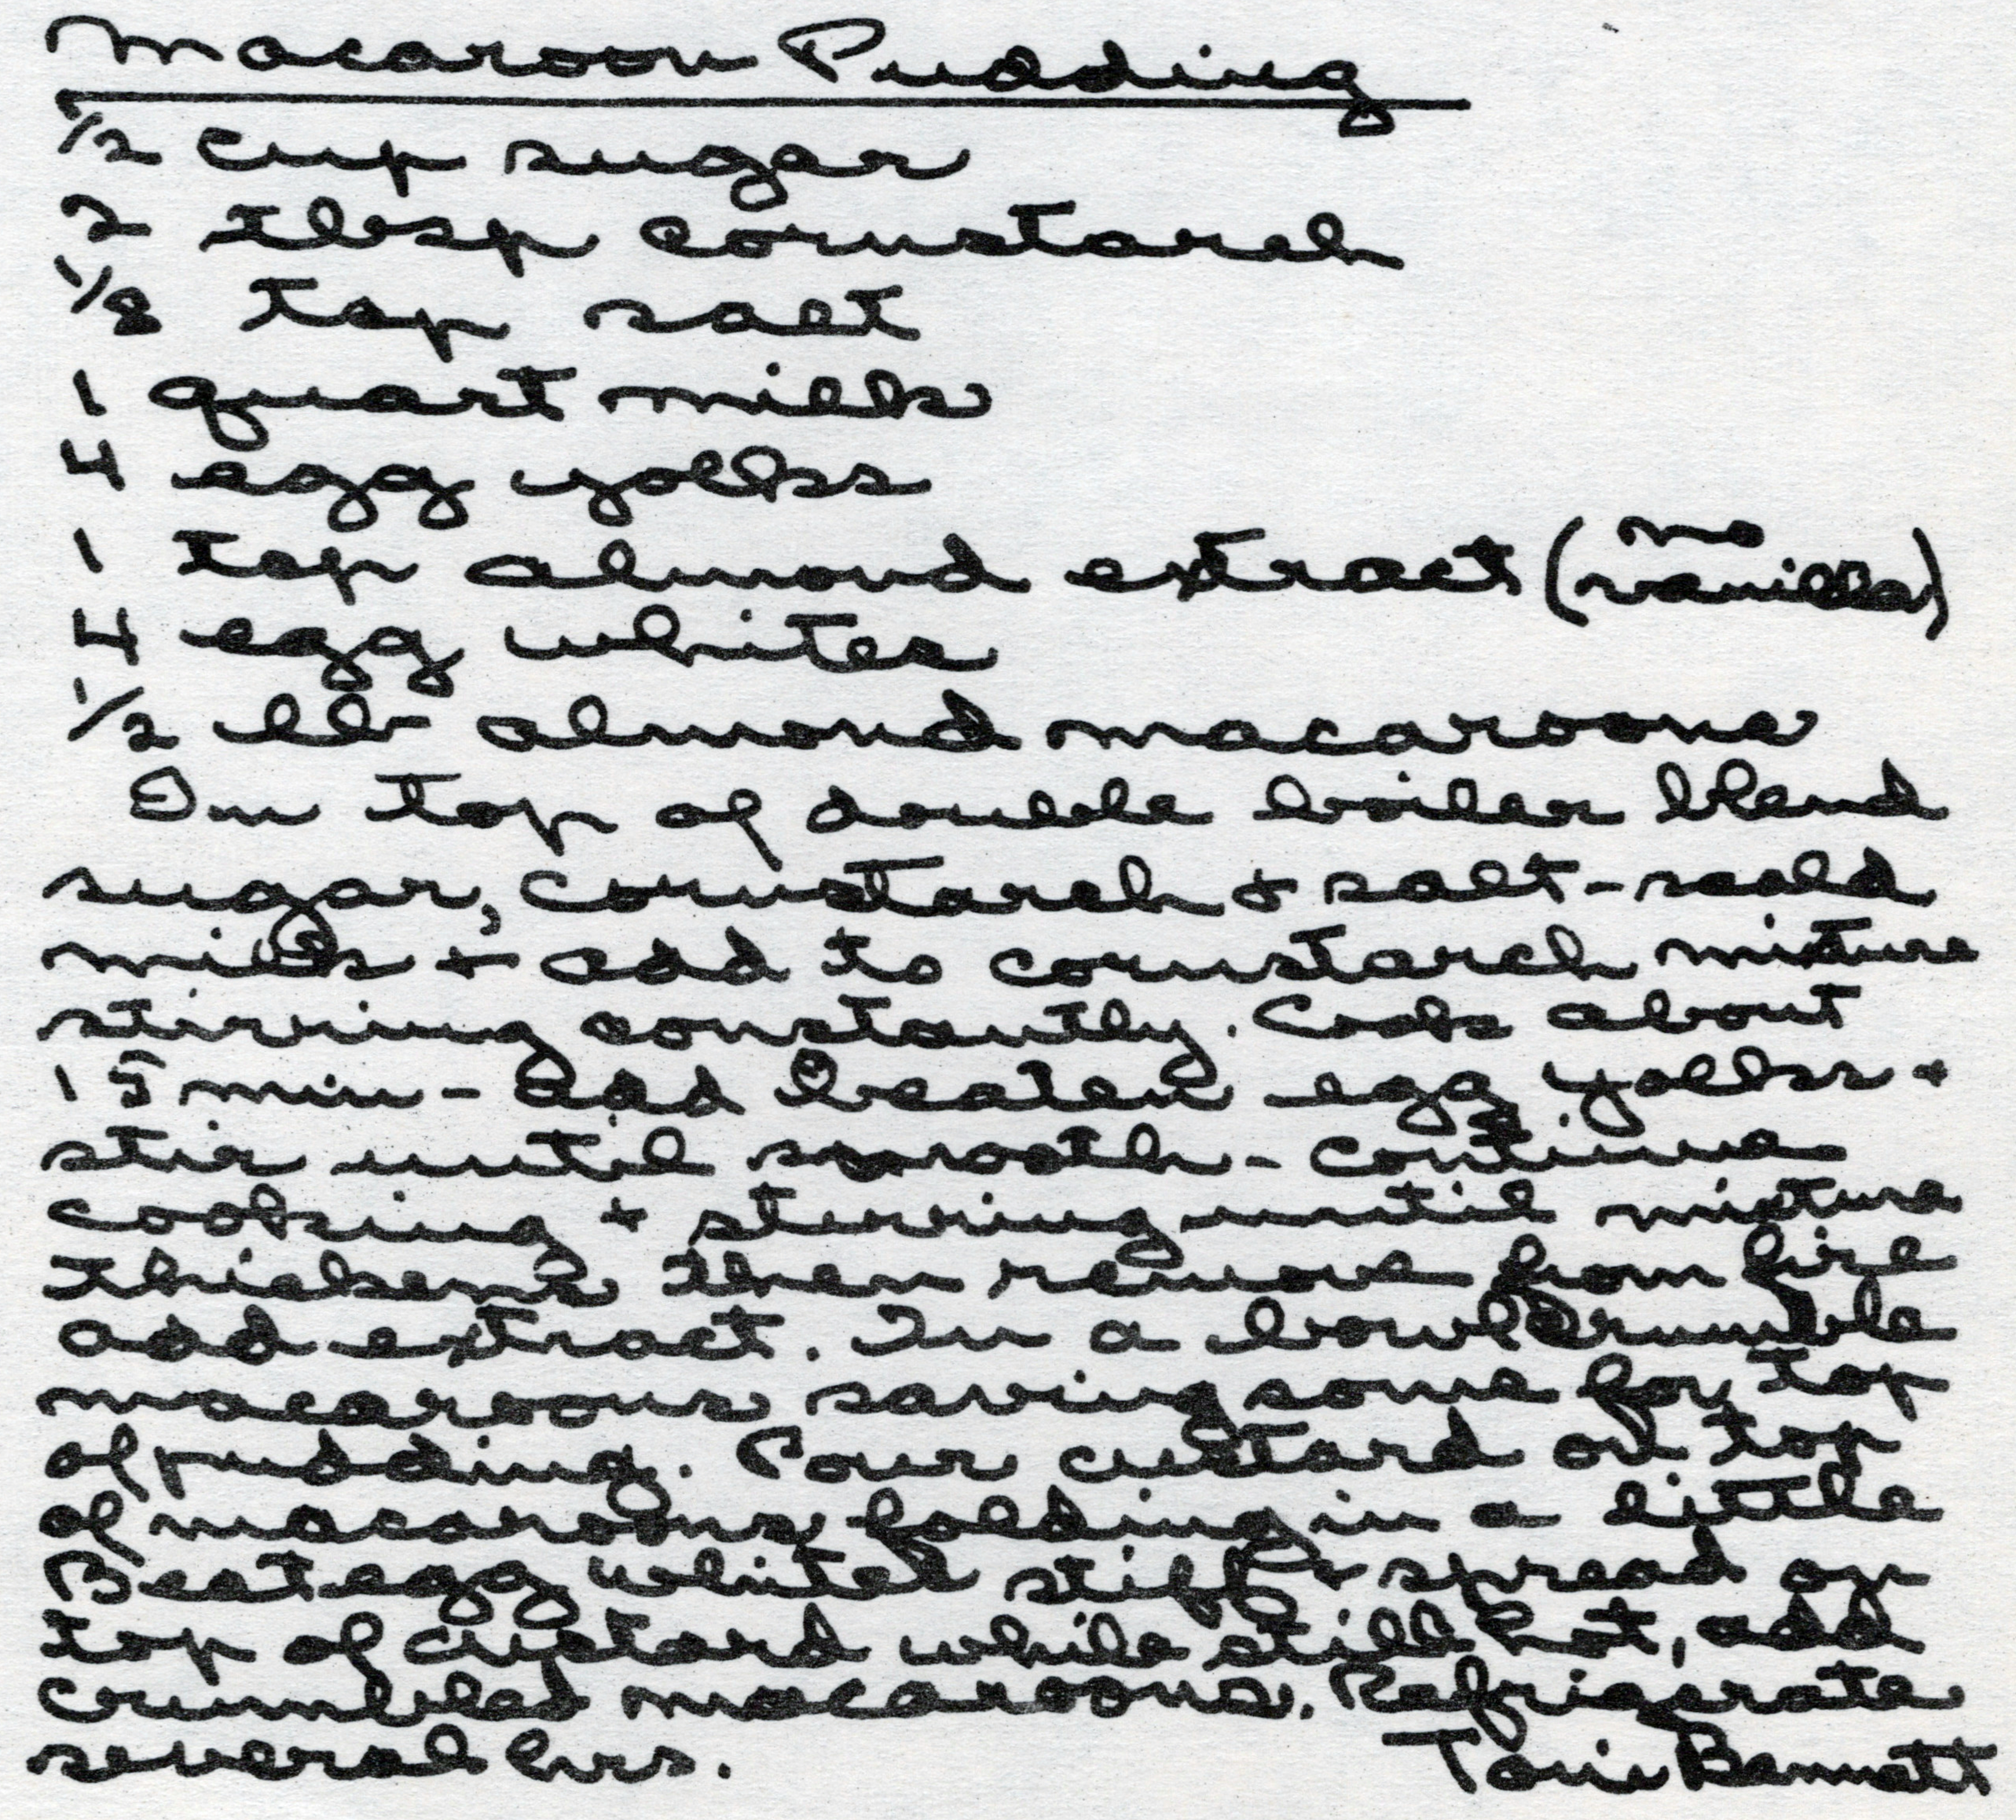 Macaroon Pudding
1/2 cup sugar
2 tbsp cornstarch
1/8 tsp salt
1 quart milk
4 egg yolks
1 tsp almond extract (no vanilla)
4 egg whites
1/2 lb almond macaroons
In top of double boiler blend
sugar, cornstarch + salt - scald
milk + add to cornstarch mixture
stirring constantly. Cook about
15 min - add beaten egg yolks +
stir until smooth - continue
cooking + stirring until mixture
thickens then remove from fire
add extract. In a bowl crumble
macaroons saving some for top
of pudding. Pour custard on top
of macaroons folding in a little
Beat egg whites stiff + spread on
top of custard while still hot, add
crumbled macaroons. Refrigerate
several hrs. Bennett